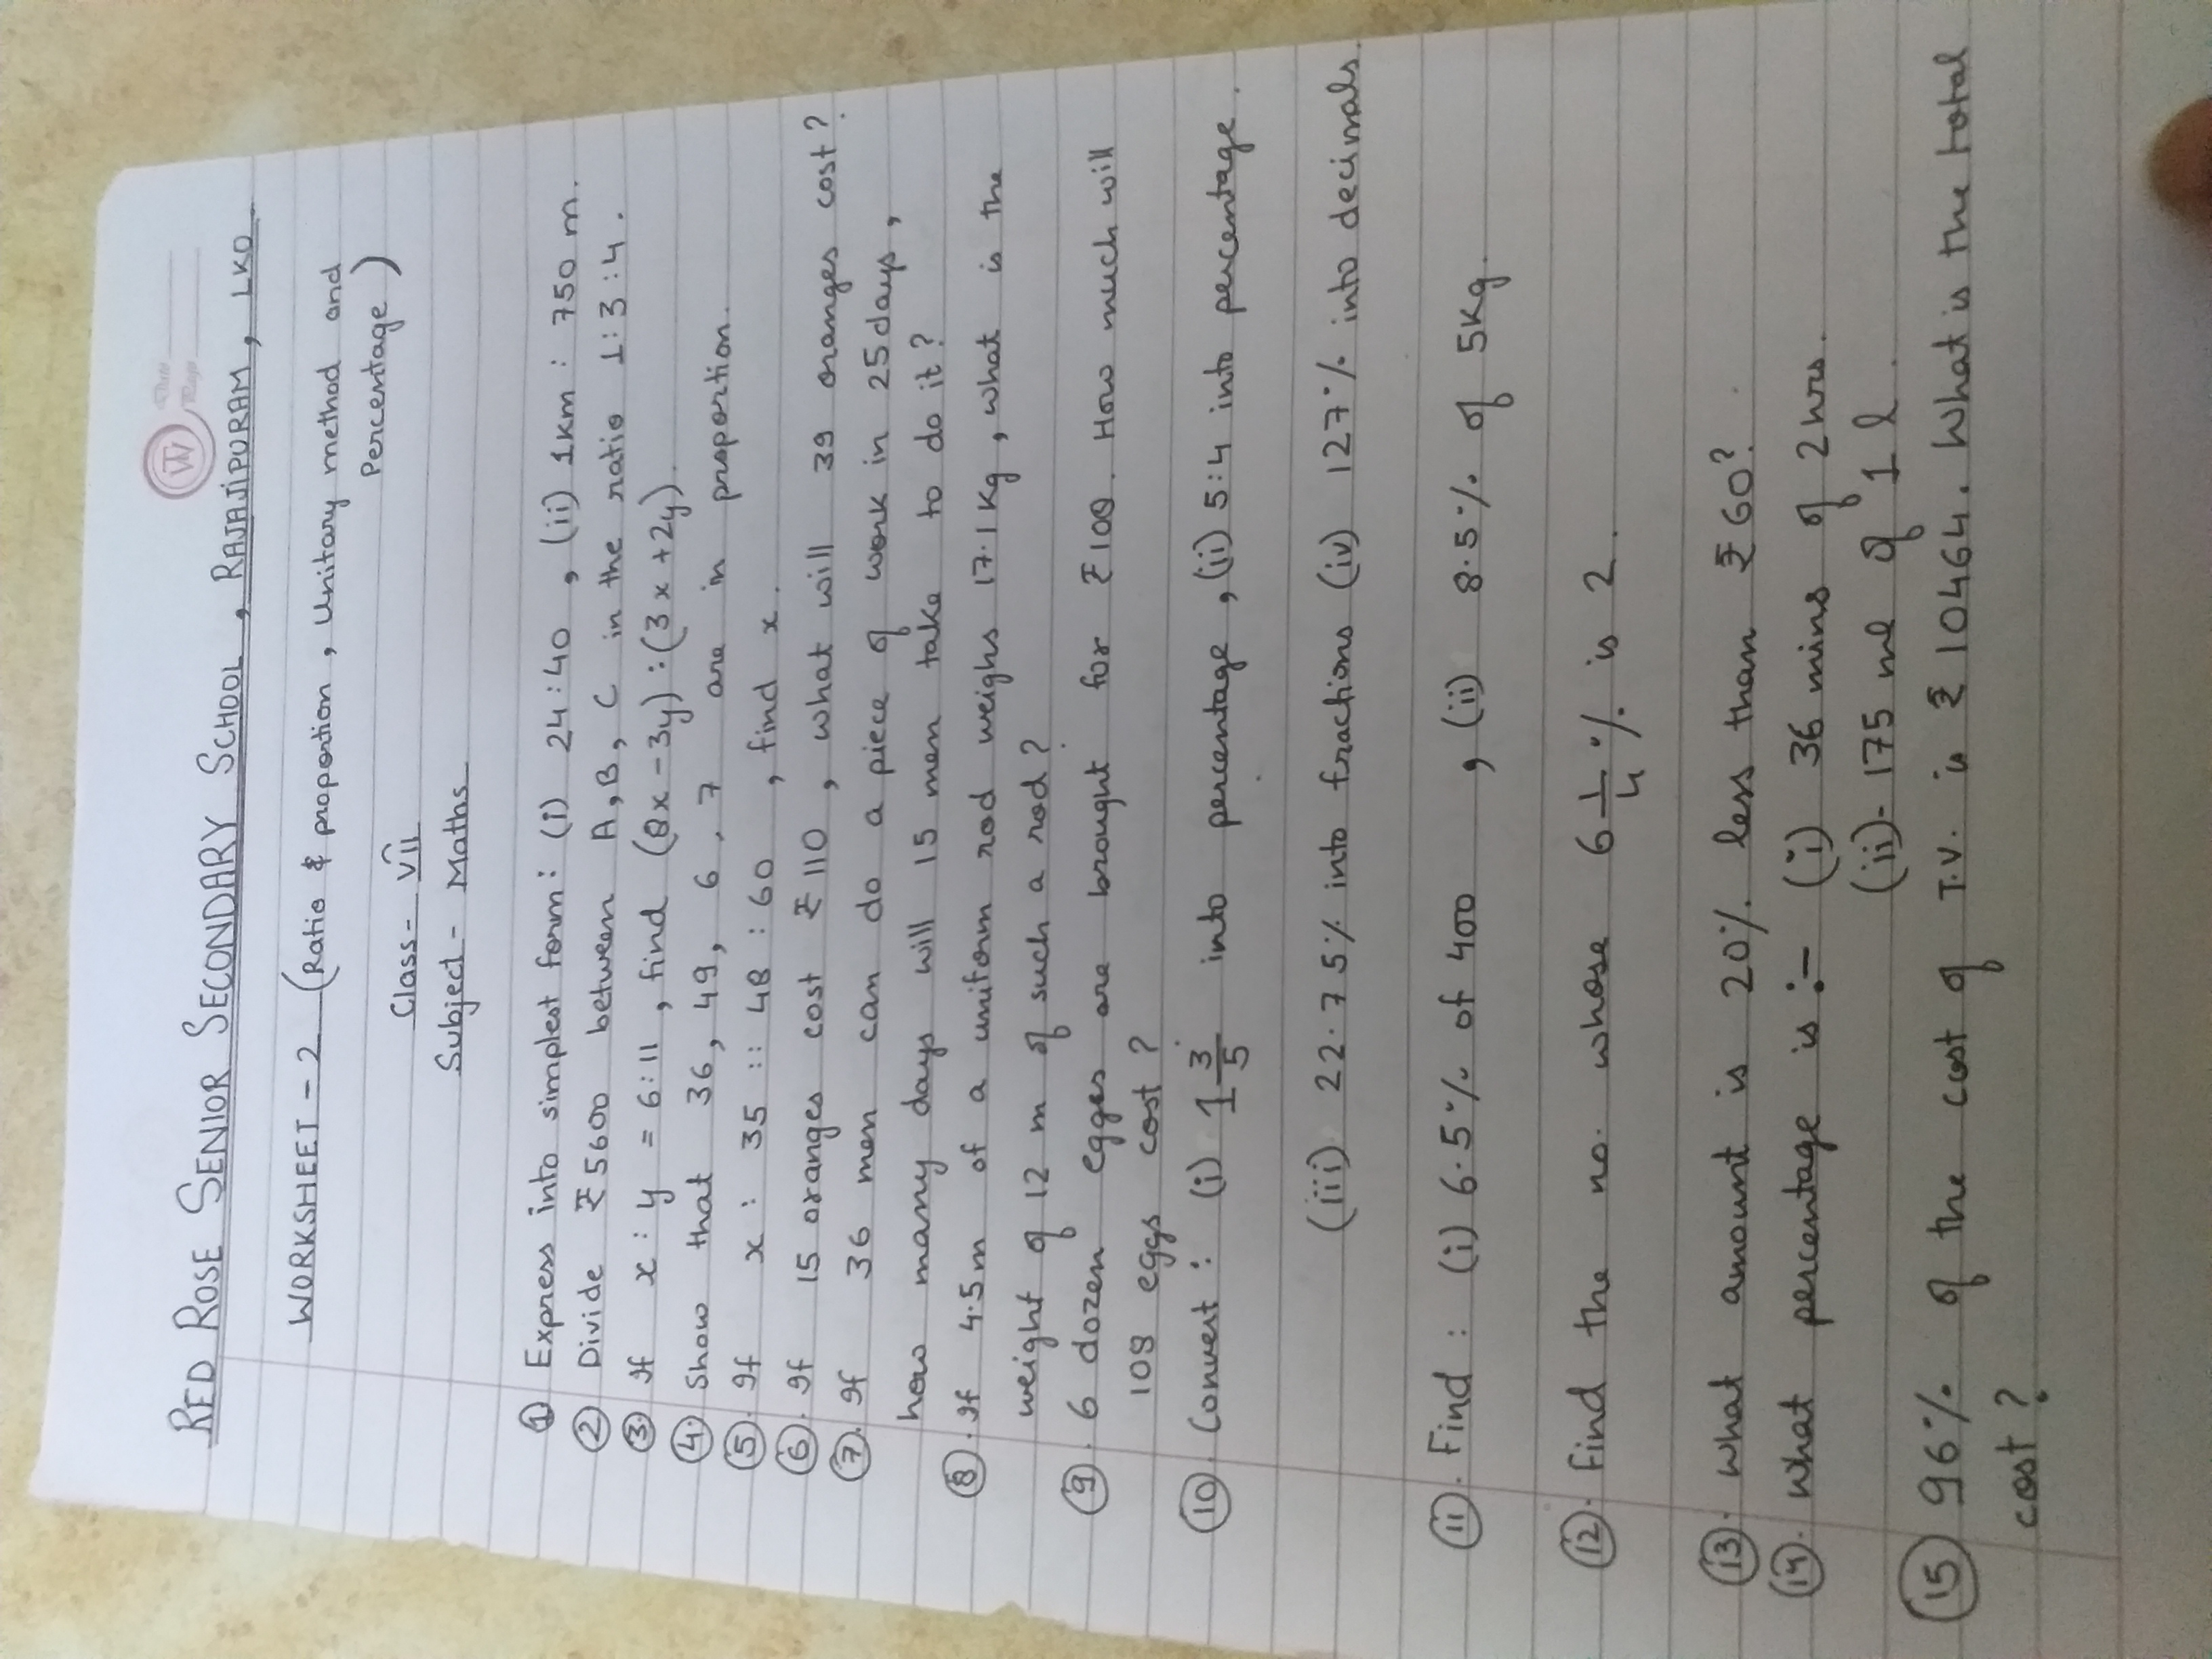 RED ROSE SENIOR SECONDARY SCHOOL, RAJAJIPURAM, LKO
WORKSHEET - 2 (Ratio & proportion, Unitary method and
Percentage)
Class - VII
Subject - Maths
① Express into simplest form: (i) 24:40, (ii) 1km : 750 m.
② Divide ₹5600 between A, B, C in the ratio 1:3:4.
③ If x : y = 6:11, find (8x-3y):(3x+2y).
④ Show that 36, 49, 6, 7 are in proportion.
⑤ If x : 35 :: 48 : 60, find x.
⑥ If 15 oranges cost ₹110, what will 39 oranges cost?
⑦ If 36 men can do a piece of work in 25 days,
how many days will 15 men take to do it?
⑧ If 4.5m of a uniform rod weighs 17.1 Kg, what is the
weight of 12 m of such a rod?
⑨ 6 dozen egges are brought for ₹108. How much will
108 eggs cost?
⑩ Convert : (i) 1 3/5 into percentage, (ii) 5:4 into percentage.
(iii) 22.75% into fractions (iv) 127% into decimals.
⑪ Find : (i) 6.5% of 400, (ii) 8.5% of 5Kg.
⑫ Find the no. whose 6 1/4 % is 2.
⑬ What amount is 20% less than ₹60?
⑭ What percentage is :- (i) 36 mins of 2 hrs.
(ii) 175 ml of 1 l.
⑮ 96% of the cost of T.V. is ₹10464. What is the total
cost?